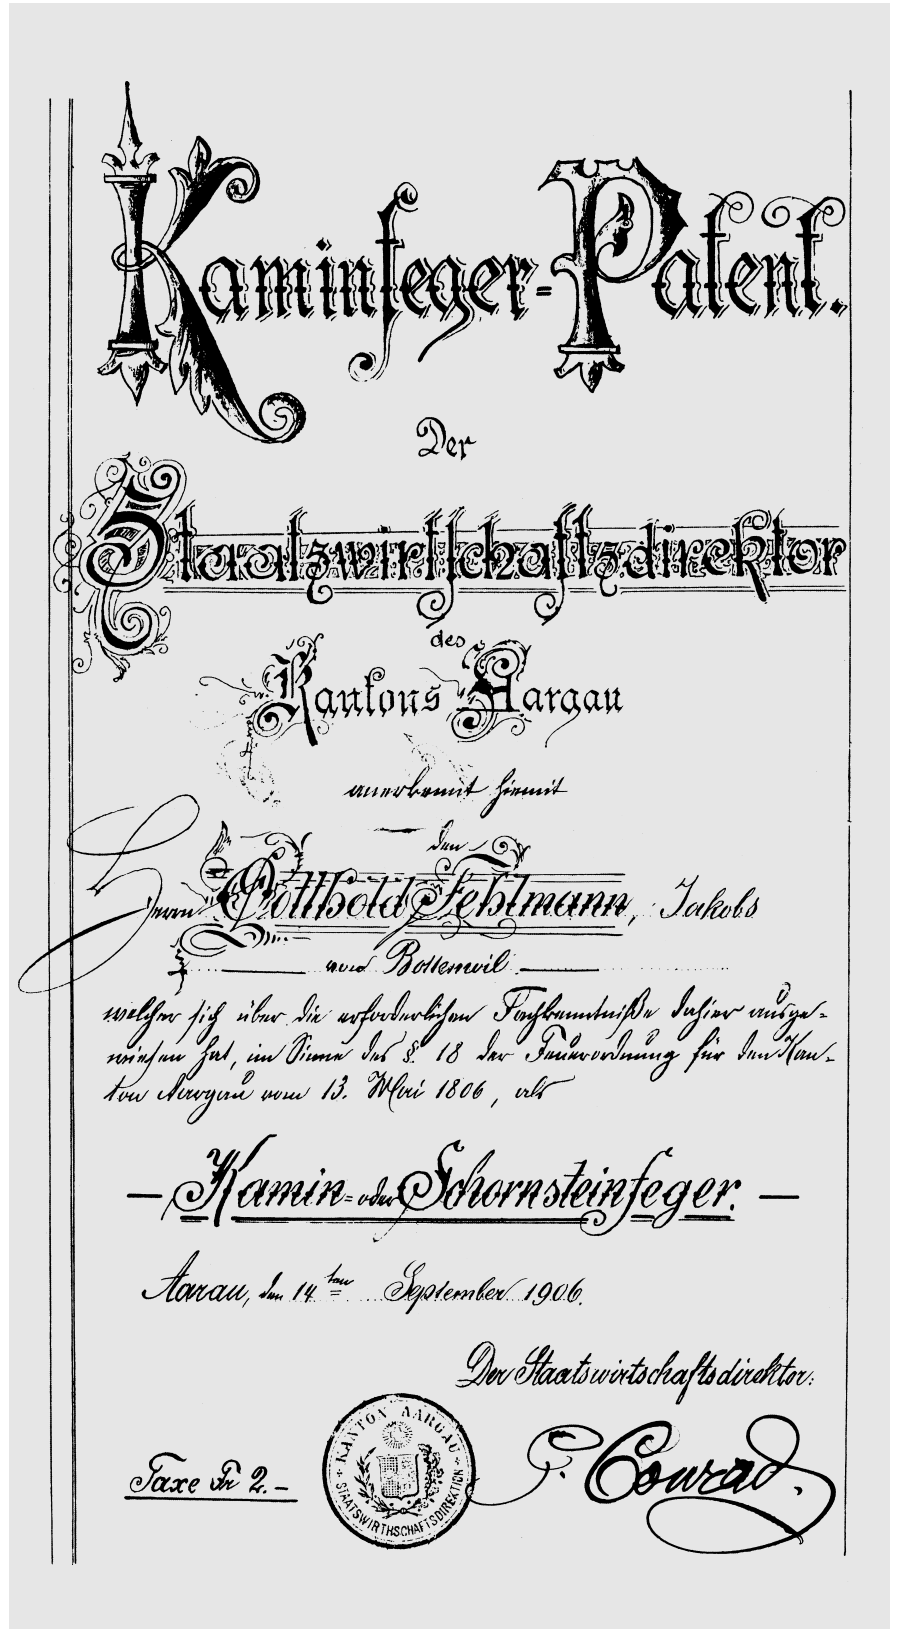 Kaminfeger-Patent.
Der
Staatswirtschaftsdirektor
des
Kantons Aargau
anerkennt hiemit
den
Herrn Gotthold Fehlmann, Jakobs
von Bottenwil
welcher sich über die erforderlichen Fachkenntniße dahier ausge-
wiesen hat, im Sinne des §. 18 der Feuerordnung für den Kan-
ton Aargau vom 13. Mai 1806, als
Kamin- oder Schornsteinfeger.
Aarau, den 14ten September 1906.
Der Staatswirtschaftsdirektor:
KANTON AARGAU
STAATSWIRTHSCHAFTSDIREKTION
Taxe Fr 2.-
Conrad.